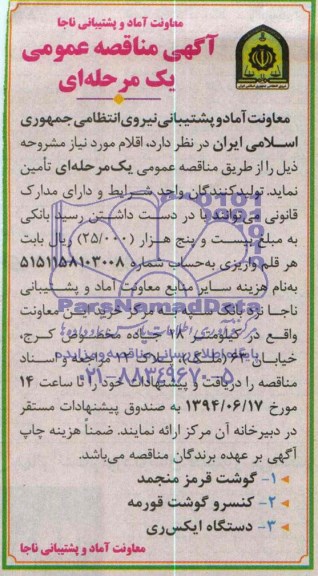 معاونت آماد و پشتیبانی ناجا
آگهی مناقصه عمومی
یک مرحله‌ای
معاونت آماد و پشتیبانی نیروی انتظامی جمهوری
اسلامی ایران در نظر دارد، اقلام مورد نیاز مشروحه
ذیل را از طریق مناقصه عمومی یک مرحله‌ای تأمین
نماید. تولیدکنندگان واجد شرایط و دارای مدارک
قانونی می‌توانند با در دست داشتن رسید بانکی
به مبلغ بیست و پنج هزار (۲۵/۰۰۰) ریال بابت
هر قلم واریزی به‌حساب شماره ۵۱۵۱۱۵۸۱۰۳۰۰۸
به‌نام هزینه سایر منابع معاونت آماد و پشتیبانی
ناجا نزد بانک سپه به مرکز خرید این معاونت
واقع در کیلومتر ۱۸ جاده مخصوص کرج،
خیابان ۶۴ پلاک ۲۲ مراجعه و اسناد
مناقصه را دریافت و پیشنهادات خود را تا ساعت ۱۴
مورخ ۱۳۹۴/۰۶/۱۷ به صندوق پیشنهادات مستقر
در دبیرخانه آن مرکز ارائه نمایند. ضمناً هزینه چاپ
آگهی بر عهده برندگان مناقصه می‌باشد.
۱- گوشت قرمز منجمد
۲- کنسرو گوشت قورمه
۳- دستگاه ایکس‌ری
معاونت آماد و پشتیبانی ناجا
ParsNamadData
پایگاه اطلاع رسانی مناقصه و مزایده
۰۲۱-۸۸۳۴۹۶۷۰-۵